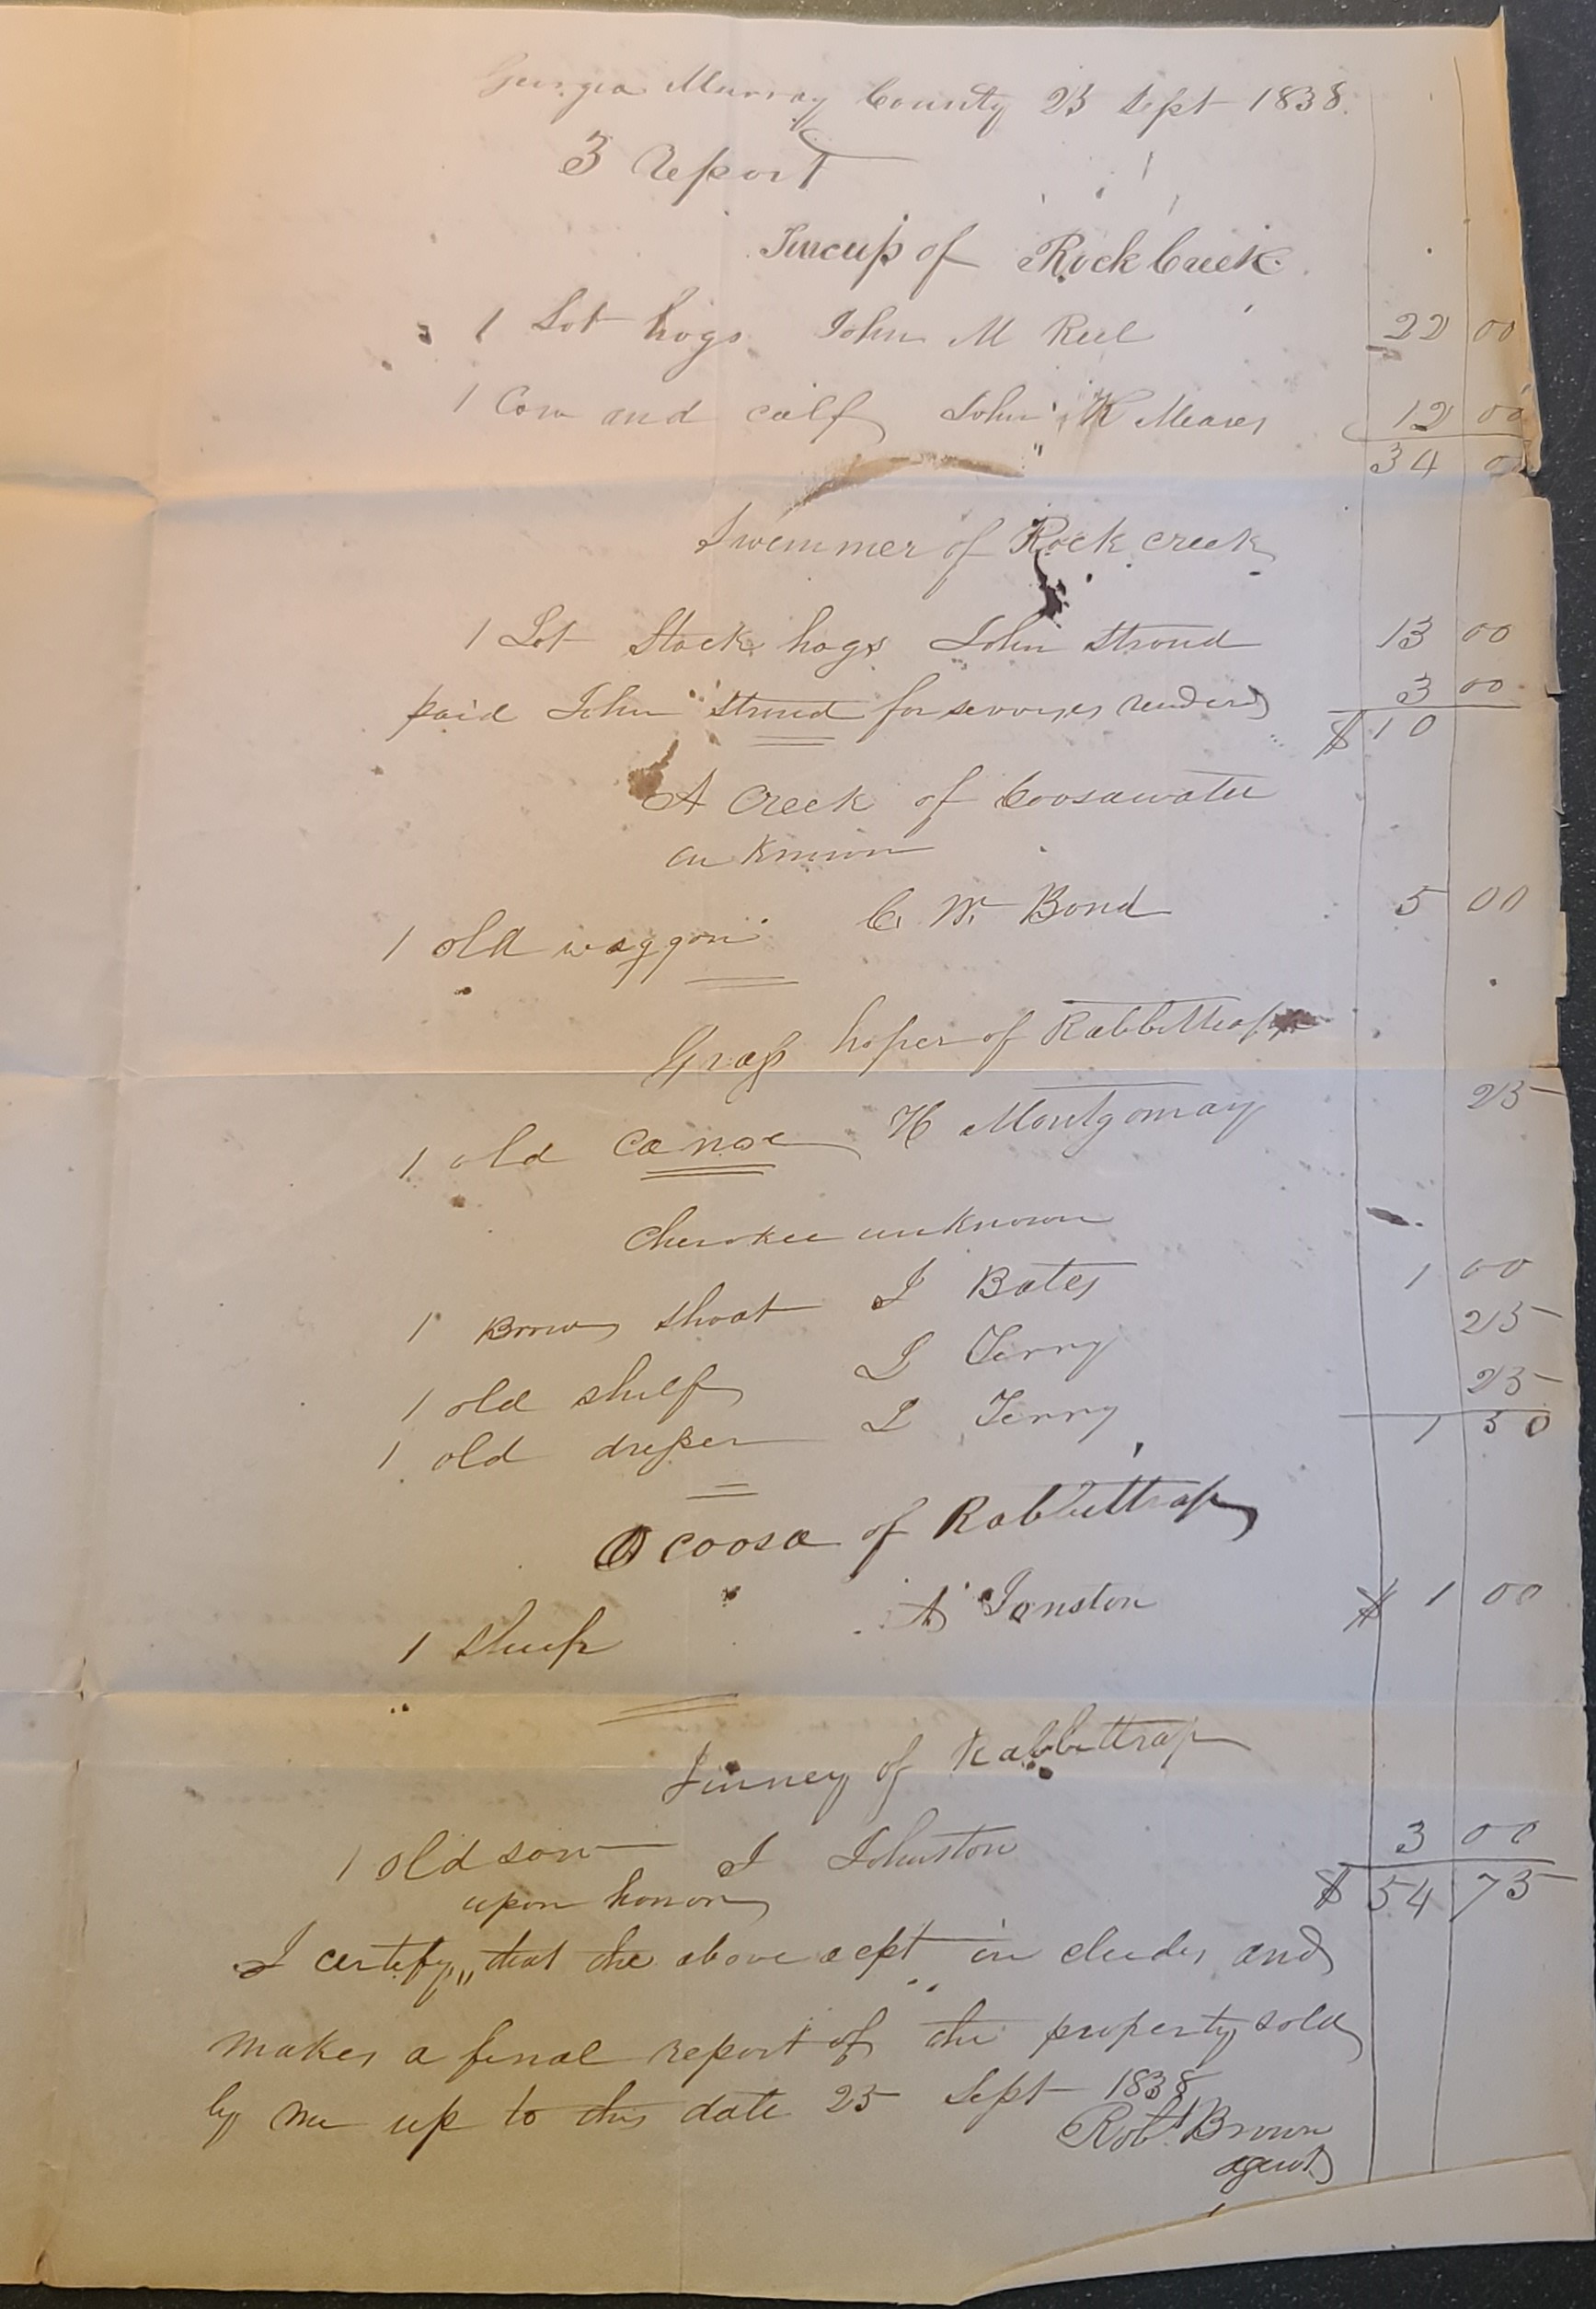 Georgia Murray County 25 Sept 1838.
3 Report
Tincup of Rock Creek.
1 Lot hogs John M Reel 22 00
1 Cow and calf John K Meaers 12 00
34 00
Swemmer of Rock creek
1 Lot Stock hogs John Stroud 13 00
paid John Stroud for servises renderd 3 00
$ 10
A Creek of Coosawatee
un known
1 old waggon C. W. Bond 5 00
Grass hoper of Rabbittrap
1 old Canoe H Montgomary 25
Cherokee unknown
1 Brown Shoat J Bates 1 00
1 old shelf L Terry 25
1 old dresser L Terry 25
1 50
Ocoosa of Rabbittrap
1 Sheep A Jonston $ 1 00
Jinney of Rabbittrap
1 old sow J Johnston 3 00
upon honor $ 54 75
I certify "that the above acpt in cludes and
makes a final report of the property sold
by me up to this date 25 Sept 1838
Robt Brown
agent